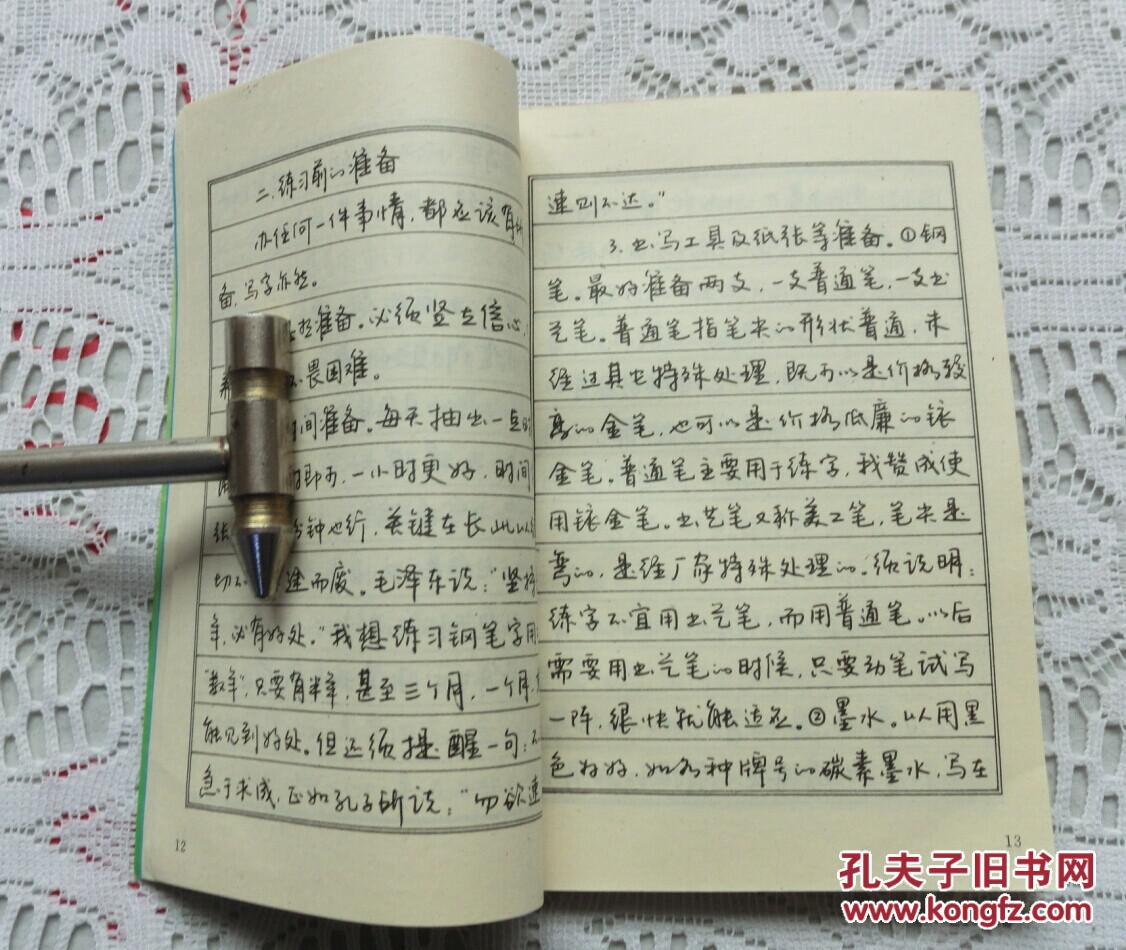 二、练习前的准备
办任何一件事情，都应该有
备，写字亦然。
准备。必须竖立信心，
畏困难。
间准备。每天抽出一点
即可，一小时更好，时间
钟也行，关键在长此以
切 途而废。毛泽东说：“坚持
年，必有好处。”我想练习钢笔字用
“数年”，只要有半年，甚至三个月，一个月，
能见到好处。但还须提醒一句：
急于求成，正如孔子所说：“勿欲速
12
速则不达。”
3.书写工具及纸张等准备。①钢
笔。最好准备两支，一支普通笔，一支书
艺笔。普通笔指笔尖的形状普通，未
经过其它特殊处理，既可以是价格较
高的金笔，也可以是价格低廉的铱
金笔。普通笔主要用于练字，我赞成使
用铱金笔。书艺笔又称美工笔，笔尖是
弯的，是经厂家特殊处理的。须说明：
练字不宜用书艺笔，而用普通笔。以后
需要用书艺笔的时候，只要动笔试写
一阵，很快就能适应。②墨水。以用黑
色为好，如各种牌号的碳素墨水，写在
13
孔夫子旧书网
www.kongfz.com